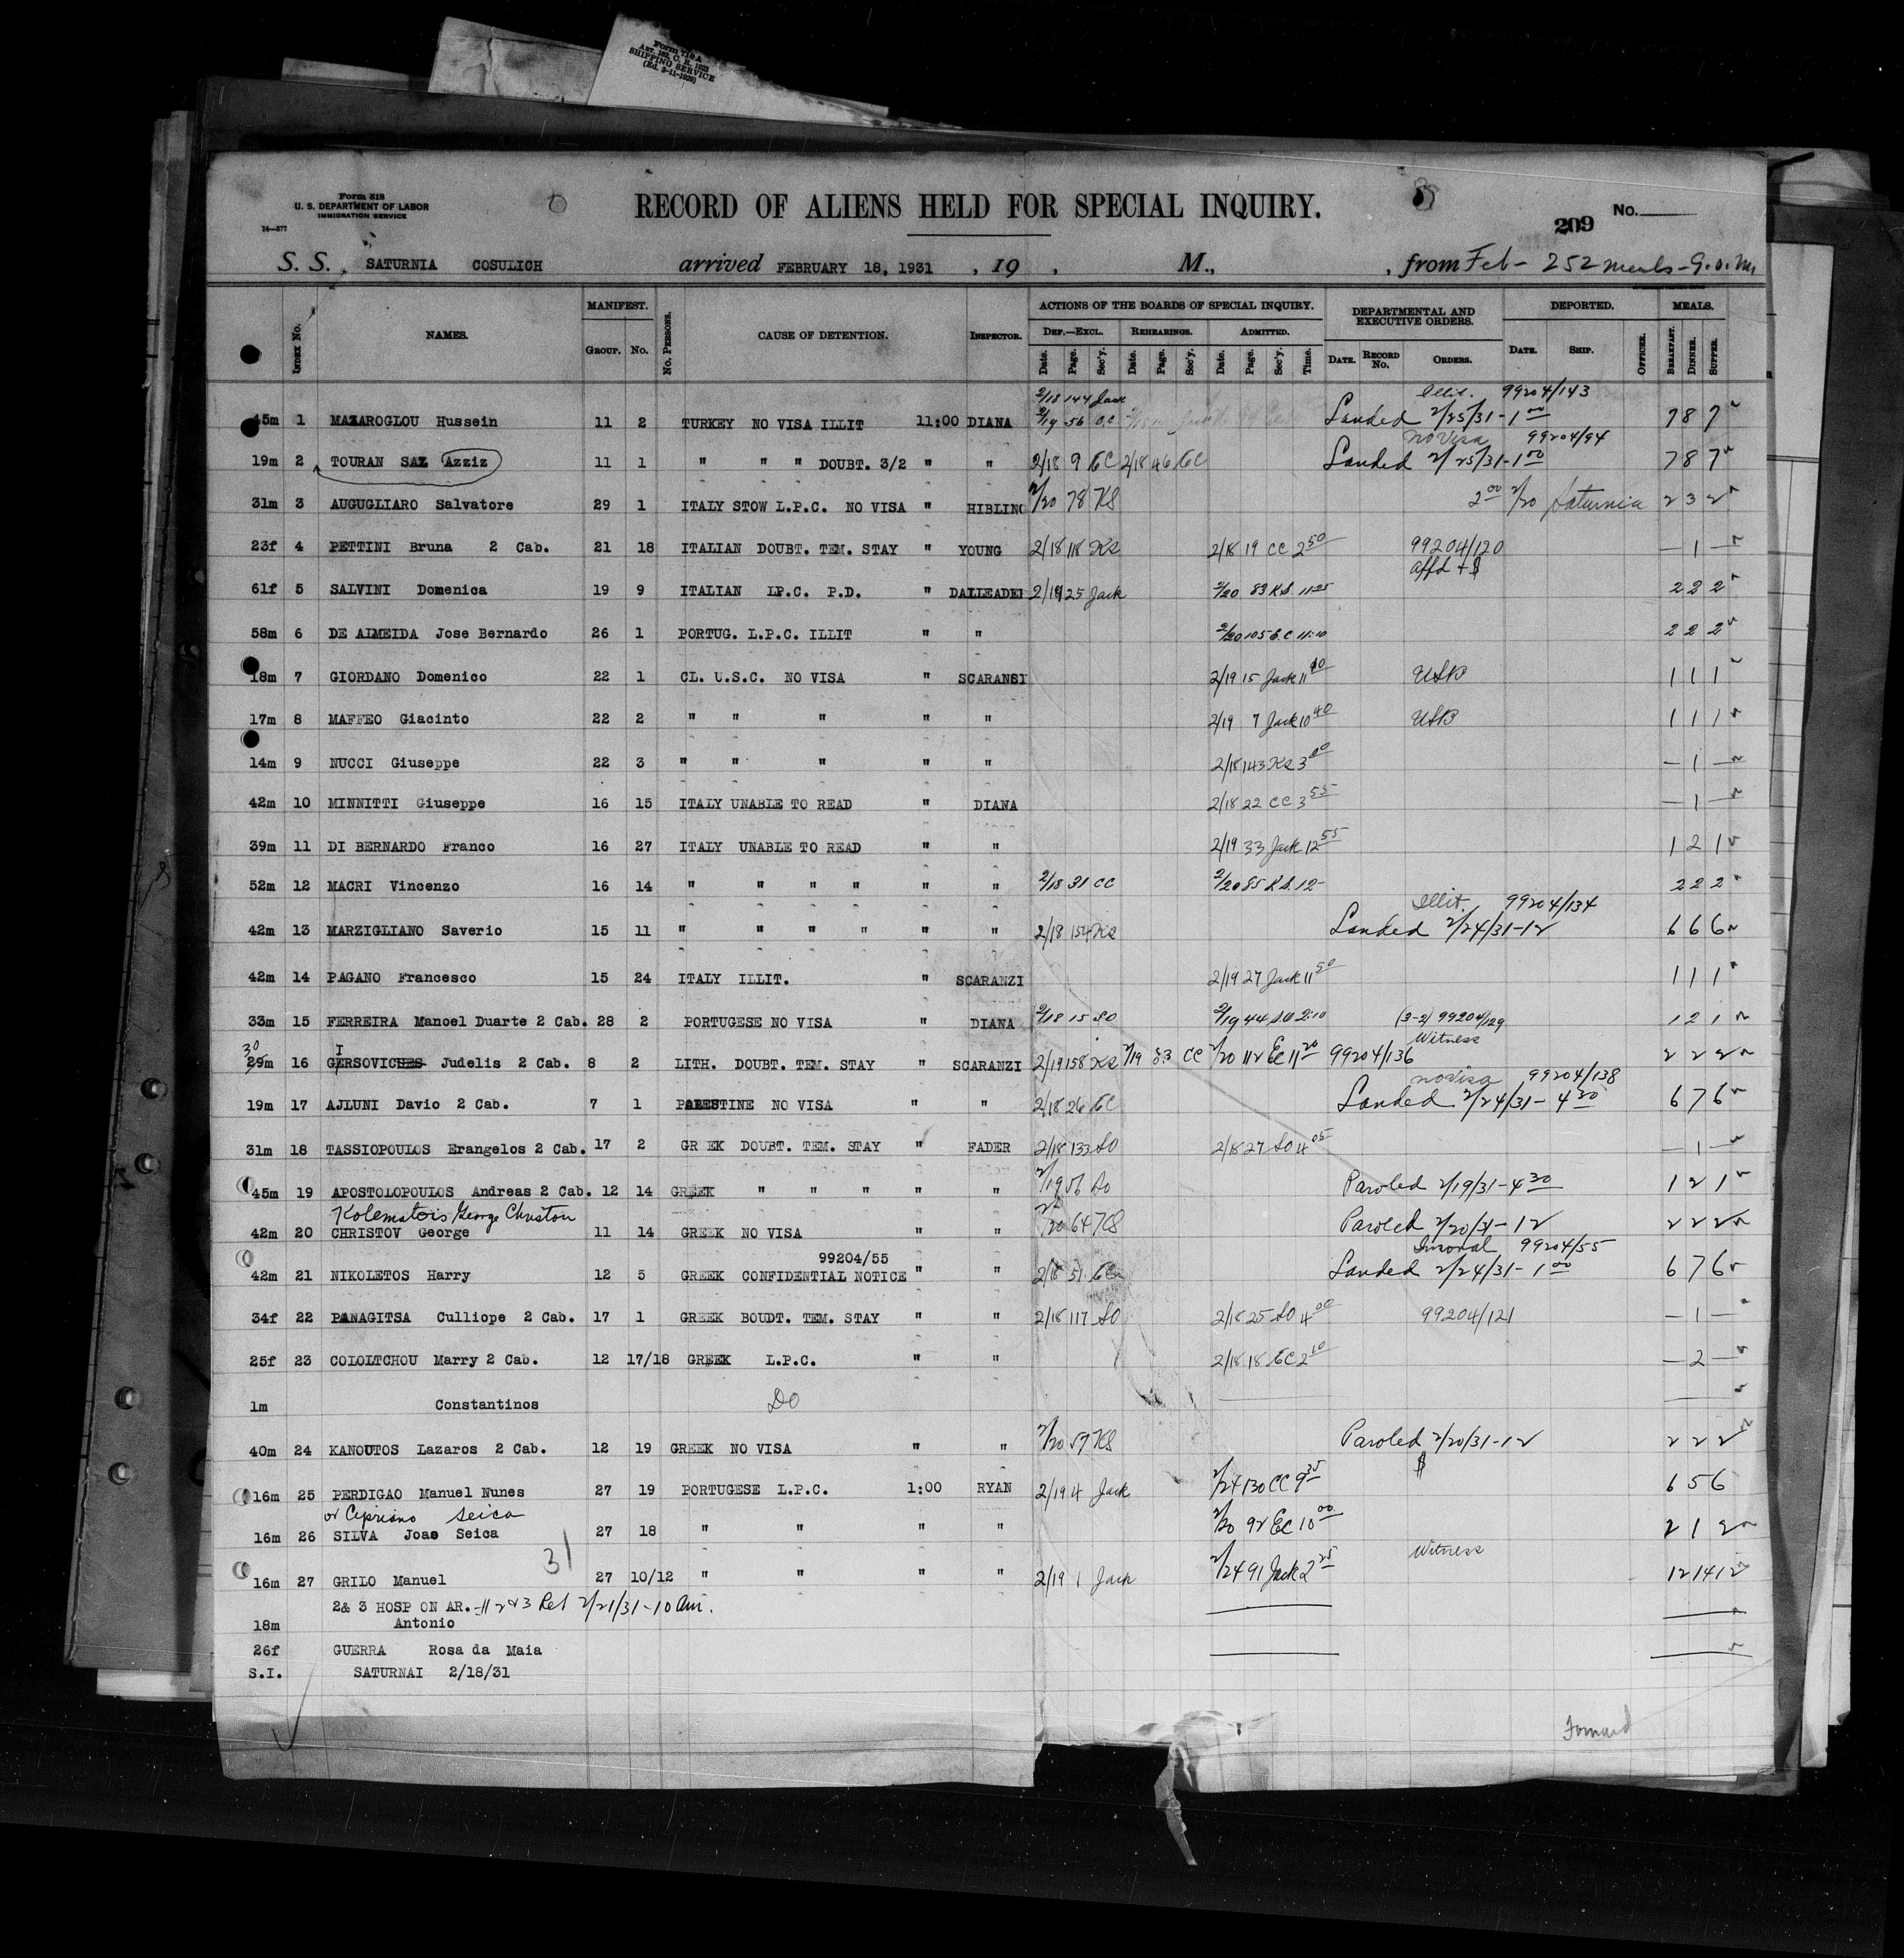 Form 719A
Art. 162, C. R. 1923
SHIPPING SERVICE
(Ed. 3-11-1929)
Form 518
U. S. DEPARTMENT OF LABOR
IMMIGRATION SERVICE
14—377
RECORD OF ALIENS HELD FOR SPECIAL INQUIRY.
209 No.
S. S. SATURNIA COSULICH arrived FEBRUARY 18, 1931, 19 , M., , from Feb - 252 meals - G.O.M.
INDEX No. NAMES. MANIFEST. GROUP. No. No. PERSONS. CAUSE OF DETENTION. INSPECTOR. ACTIONS OF THE BOARDS OF SPECIAL INQUIRY. DEPARTMENTAL AND EXECUTIVE ORDERS. DEPORTED. MEALS.
DEF.—EXCL. REHEARINGS. ADMITTED.
Date. Page. Sec'y. Date. Page. Sec'y. Date. Page. Sec'y. Time. DATE. RECORD No. ORDERS. DATE. SHIP. OFFICER. BREAKFAST. DINNER. SUPPER.
2/18 144 Jack Illit. 99204/143
45m 1 MAZAROGLOU Hussein 11 2 TURKEY NO VISA ILLIT 11:00 DIANA 2/19 56 O.C Landed 2/25/31 - 1 00 7 8 7
No Visa 99204/94
19m 2 TOURAN SAZ Azziz 11 1 " " " DOUBT. 3/2 " " 2/18 9 EC 2/18 46 EC Landed 2/25/31 - 1 00 7 8 7
31m 3 AUGUGLIARO Salvatore 29 1 ITALY STOW L.P.C. NO VISA " HIBLING 2/20 78 KS 2 00 2/20 Saturnia 2 3 2
23f 4 PETTINI Bruna 2 Cab. 21 18 ITALIAN DOUBT. TEM. STAY " YOUNG 2/18 118 KS 2/18 19 CC 2 50 99204/120 — 1 —
affd + $
61f 5 SALVINI Domenica 19 9 ITALIAN LP.C. P.D. " DALLEADEI 2/19 25 Jack 2/20 83 K.S. 11 25 2 2 2
58m 6 DE ALMEIDA Jose Bernardo 26 1 PORTUG. L.P.C. ILLIT " " 2/20 105 E.C 11:10 2 2 2
18m 7 GIORDANO Domenico 22 1 CL. U.S.C. NO VISA " SCARANSI 2/19 15 Jack 11 10 USB 1 1 1
17m 8 MAFFEO Giacinto 22 2 " " " " " 2/19 7 Jack 10 40 USB 1 1 1
14m 9 NUCCI Giuseppe 22 3 " " " " " 2/18 143 KS 3 00 — 1 —
42m 10 MINNITTI Giuseppe 16 15 ITALY UNABLE TO READ " DIANA 2/18 22 CC 3 55 — 1 —
39m 11 DI BERNARDO Franco 16 27 ITALY UNABLE TO READ " " 2/19 33 Jack 12 55 1 2 1
52m 12 MACRI Vincenzo 16 14 " " " " " " 2/18 31 CC 2/20 85 K.S. 12- 2 2 2
Illit. 99204/134
42m 13 MARZIGLIANO Saverio 15 11 " " " " " " 2/18 154 KS Landed 2/24/31 - 12 6 6 6
42m 14 PAGANO Francesco 15 24 ITALY ILLIT. " SCARANZI 2/19 27 Jack 11 50 1 1 1
33m 15 FERREIRA Manoel Duarte 2 Cab. 28 2 PORTUGESE NO VISA " DIANA 2/18 15 SO 2/19 44 SO 2:10 (3-2) 99204/129 1 2 1
30 I Witness
29m 16 GERSOVICHES Judelis 2 Cab. 8 2 LITH. DOUBT. TEM. STAY " SCARANZI 2/19 158 KS 2/19 83 CC 2/20 112 EC 11 20 99204/136 2 2 2
No Visa 99204/138
19m 17 AJLUNI Davio 2 Cab. 7 1 PALESTINE NO VISA " " 2/18 26 EC Landed 2/24/31 - 4 30 6 7 6
31m 18 TASSIOPOULOS Erangelos 2 Cab. 17 2 GR EK DOUBT. TEM. STAY " FADER 2/18 133 SO 2/18 27 SO 4 05 — 1 —
45m 19 APOSTOLOPOULOS Andreas 2 Cab. 12 14 GREEK " " " " " 2/19 56 SO Paroled 2/19/31 - 4 30 1 2 1
Kolematois George Christou
42m 20 CHRISTOV George 11 14 GREEK NO VISA " " 2/20 64 KS Paroled 2/20/31 - 12 2 2 2
99204/55 Immoral 99204/55
42m 21 NIKOLETOS Harry 12 5 GREEK CONFIDENTIAL NOTICE " " 2/18 51 EC Landed 2/24/31 - 1 00 6 7 6
34f 22 PANAGITSA Culliope 2 Cab. 17 1 GREEK BOUDT. TEM. STAY " " 2/18 117 SO 2/18 25 SO 4 00 99204/121 — 1 —
25f 23 COLOLTCHOU Marry 2 Cab. 12 17/18 GREEK L.P.C. " " 2/18 18 EC 2 10 — 2 —
1m Constantinos Do
40m 24 KANOUTOS Lazaros 2 Cab. 12 19 GREEK NO VISA " " 2/20 59 KS Paroled 2/20/31 - 12 2 2 2
$
16m 25 PERDIGAO Manuel Nunes 27 19 PORTUGESE L.P.C. 1:00 RYAN 2/19 4 Jack 2/24 130 CC 9 35 6 5 6
or Cipriano Seica
16m 26 SILVA Joao Seica 27 18 " " " " 2/20 92 EC 10 00 2 1 2
31 Witness
16m 27 GRILO Manuel 27 10/12 " " " " 2/19 1 Jack 2/24 91 Jack 2 25 12 14 12
2& 3 HOSP ON AR. - # 2 & 3 Rel 2/21/31 - 10 Am.
18m Antonio
26f GUERRA Rosa da Maia
S.I. SATURNAI 2/18/31
Forward